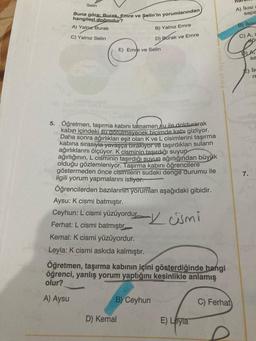 Selin
Buna göre; Burak, Emre ve Selin'in yorumlarından
hangileri doğrudur?
A) Yalnız Burak
B) Yalnız Emre
C) Yalnız Selin
D) Burak ve Emre
E) Emre ve Selin
5. Öğretmen, taşırma kabını tamamen su ile doldurarak
kabın içindeki su görülmeyecek biçimde kabı gizliyor.
Daha sonra ağırlıkları eşit olan K ve L cisimlerini taşırma
kabına sırasıyla yavaşça bırakıyor ve taşırdıkları suların
ağırlıklarını ölçüyor. K cisminin taşırdığı suyun
ağırlığının, L cisminin taşırdığı suyun ağırlığından büyük
olduğu gözlemleniyor. Taşırma kabını öğrencilere
göstermeden önce cisimlerin sudaki denge durumu ile
ilgili yorum yapmalarını istiyor.
Öğrencilerden bazılarının yorumları aşağıdaki gibidir.
Aysu: K cismi batmıştır.
Ceyhun: L cismi yüzüyordur.
L cismi
Ferhat: L cismi batmıştır.
Kemal: K cismi yüzüyordur.
Leyla: K cismi askıda kalmıştır.
Öğretmen, taşırma kabının içini gösterdiğinde hangi
öğrenci, yanlış yorum yaptığını kesinlikle anlamış
olur?
A) Aysu
B) Ceyhun
C) Ferhat
D) Kemal
E) Leyla
A) İkisi
7.